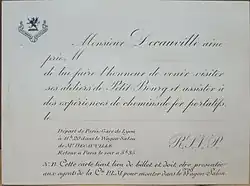 Monsieur Decauville aîné
prie M
de lui faire l'honneur de venir visiter
ses ateliers de Petit Bourg et assister à
des expériences de chemins de fer portatifs,
le
Départ de Paris, Gare de Lyon
à 11h. 20 dans le Wagon-Salon
de Mr DECAUVILLE
Retour à Paris le soir à 5h.35
R.S.V.P.
N.B. Cette carte tient lieu de billet et doit être présentée
aux agents de la Cie P.L.M. pour monter dans le Wagon-Salon.